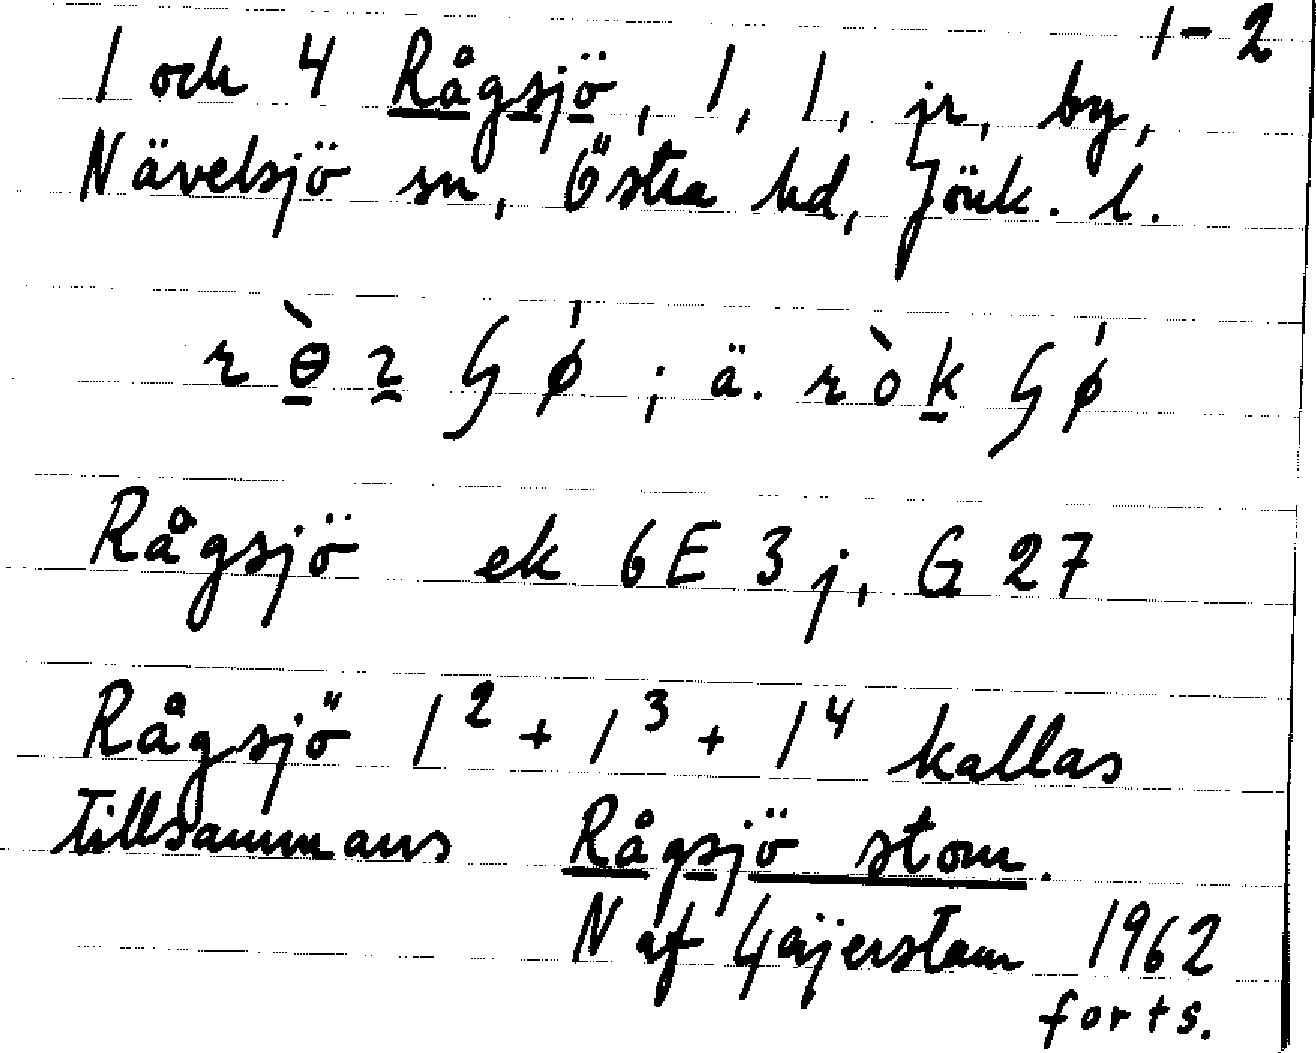 1-2
1 och 4 Rågsjö, 1, 1, jr, by,
Nävelsjö sn, Östra hd, Jönk. l.
; ä.
Rågsjö ek 6E 3j, G 27
Rågsjö 1² + 1³ + 1⁴ kallas
tillsammans Rågsjö stom.
N af Gäijerstam 1962
forts.